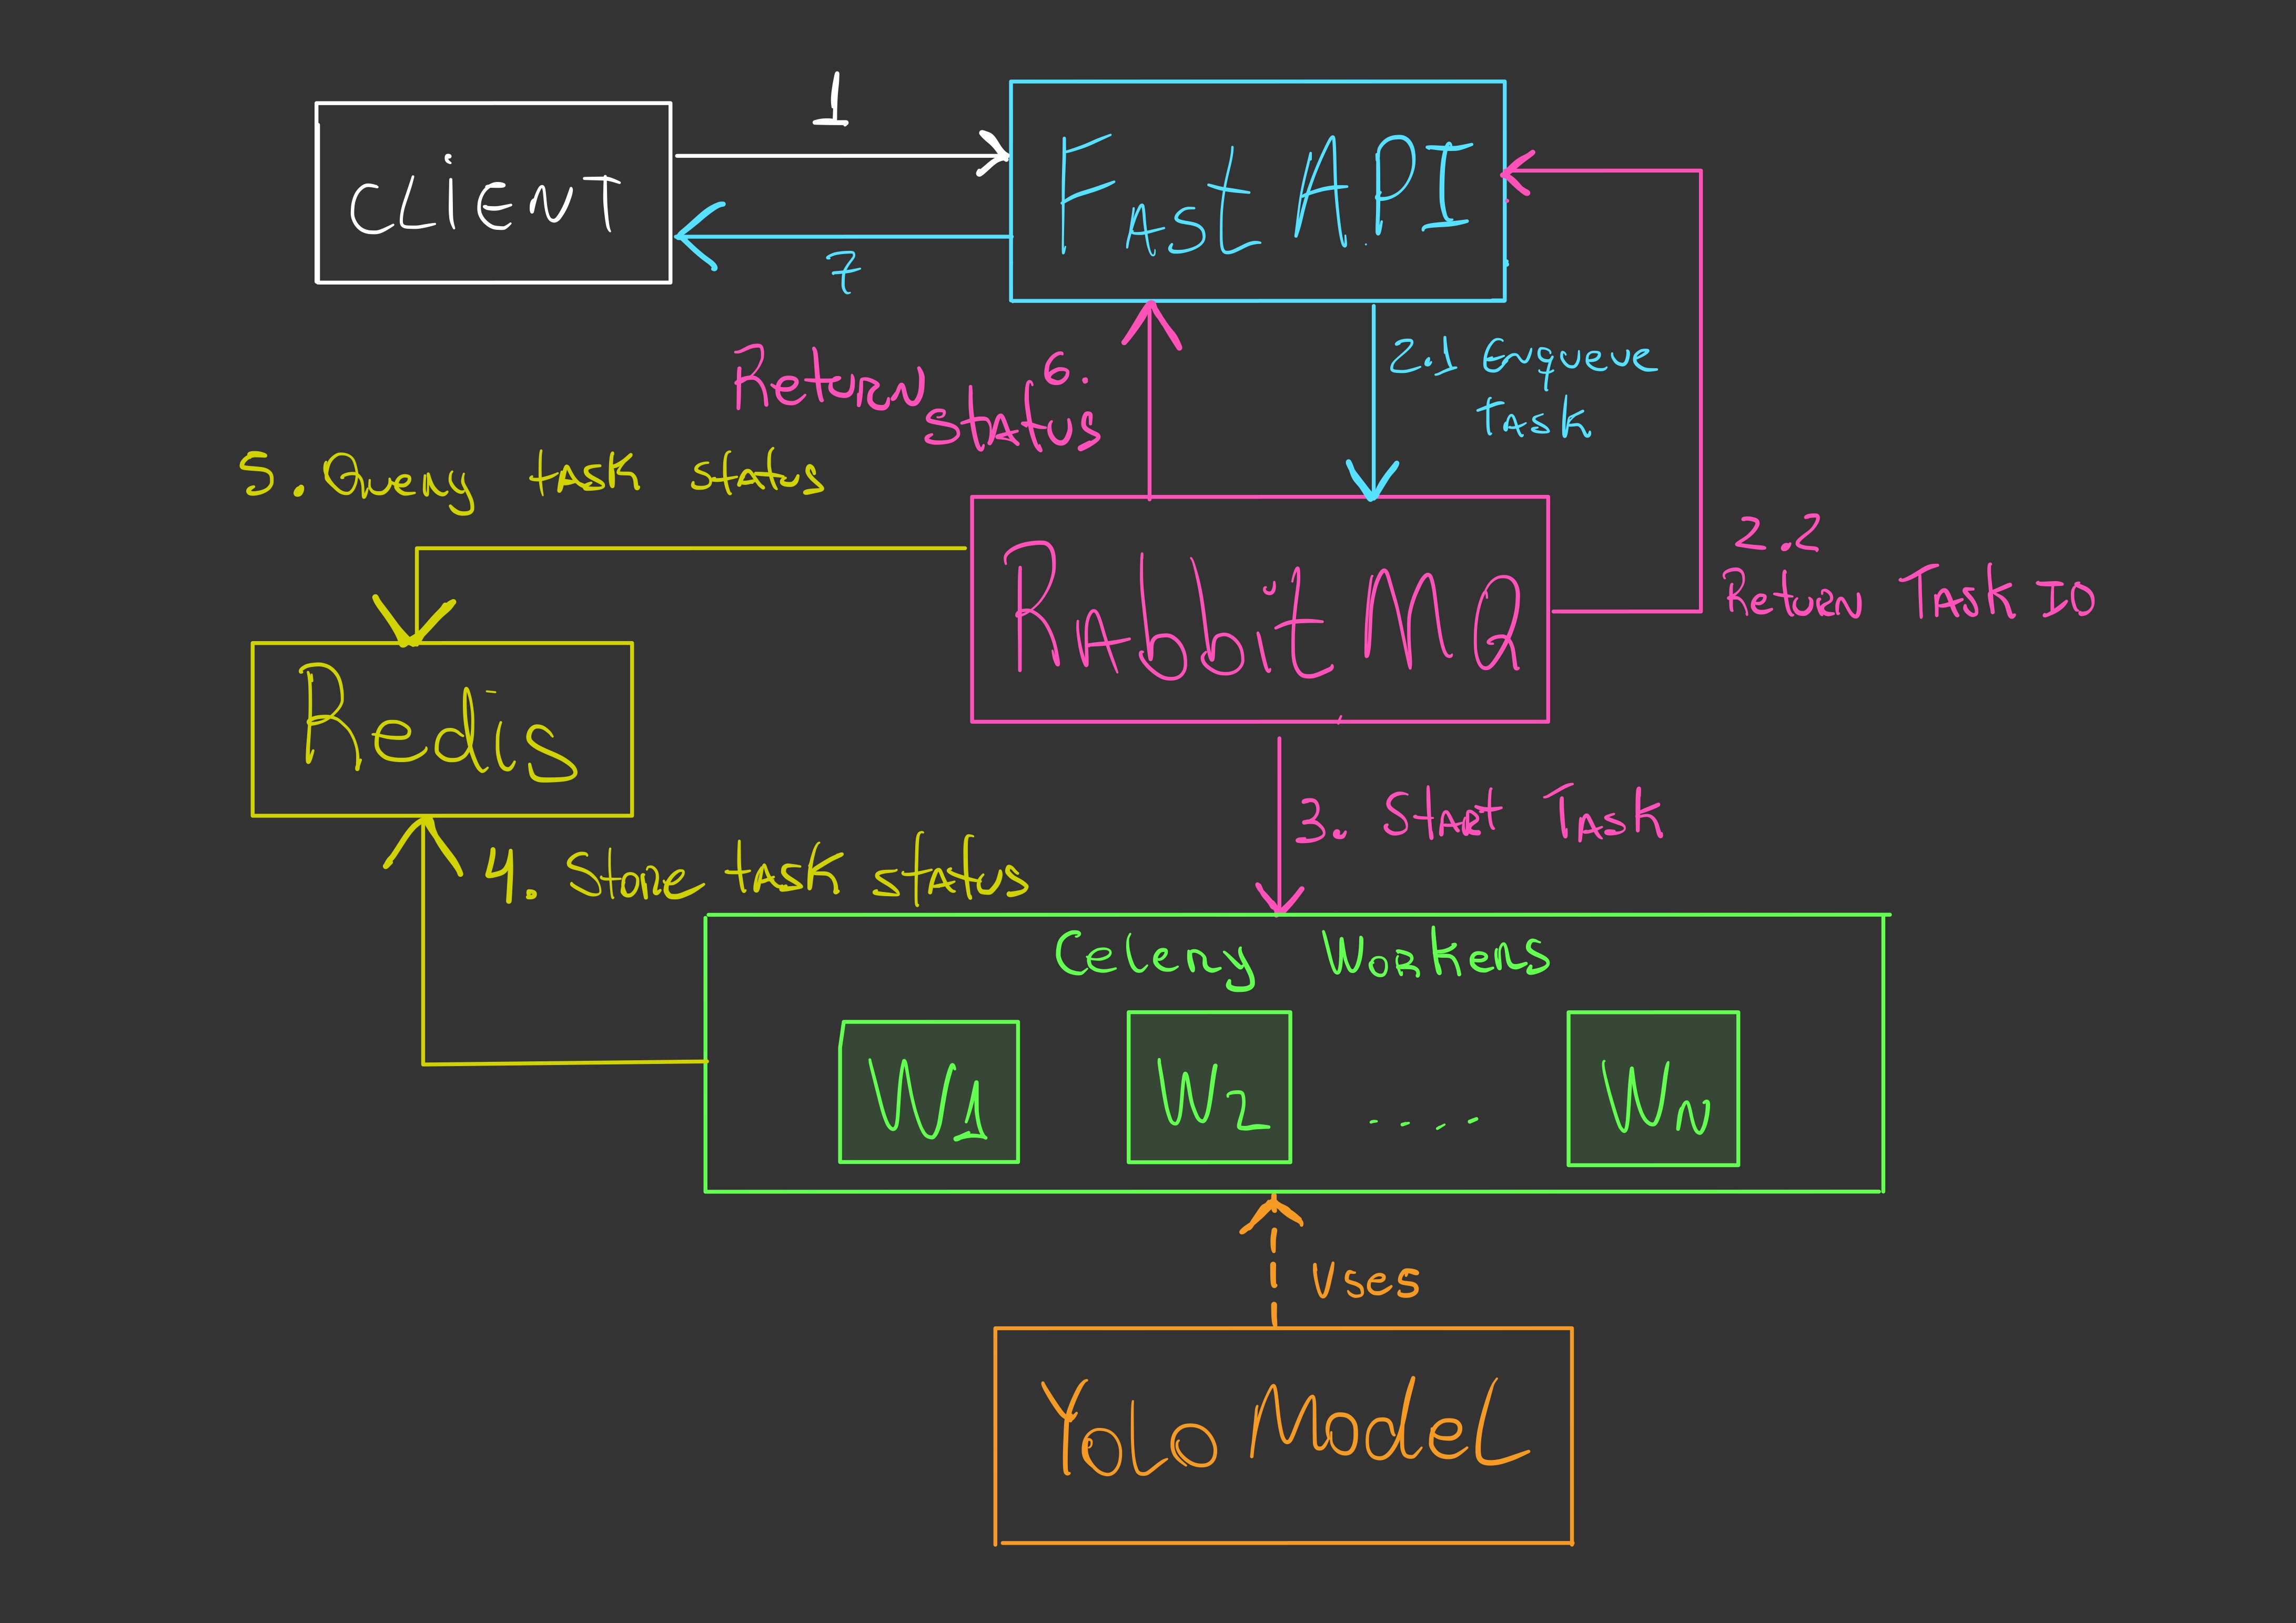 1
CLIENT
Fast API
7
Return
6.
status
2.1 Enqueue
Task
5. Query task status
2.2
Return Task ID
Rabbit MQ
Redis
3. Start Task
4. Store task status
Celery Workers
W1
W2
....
WN
Uses
YOLO Model